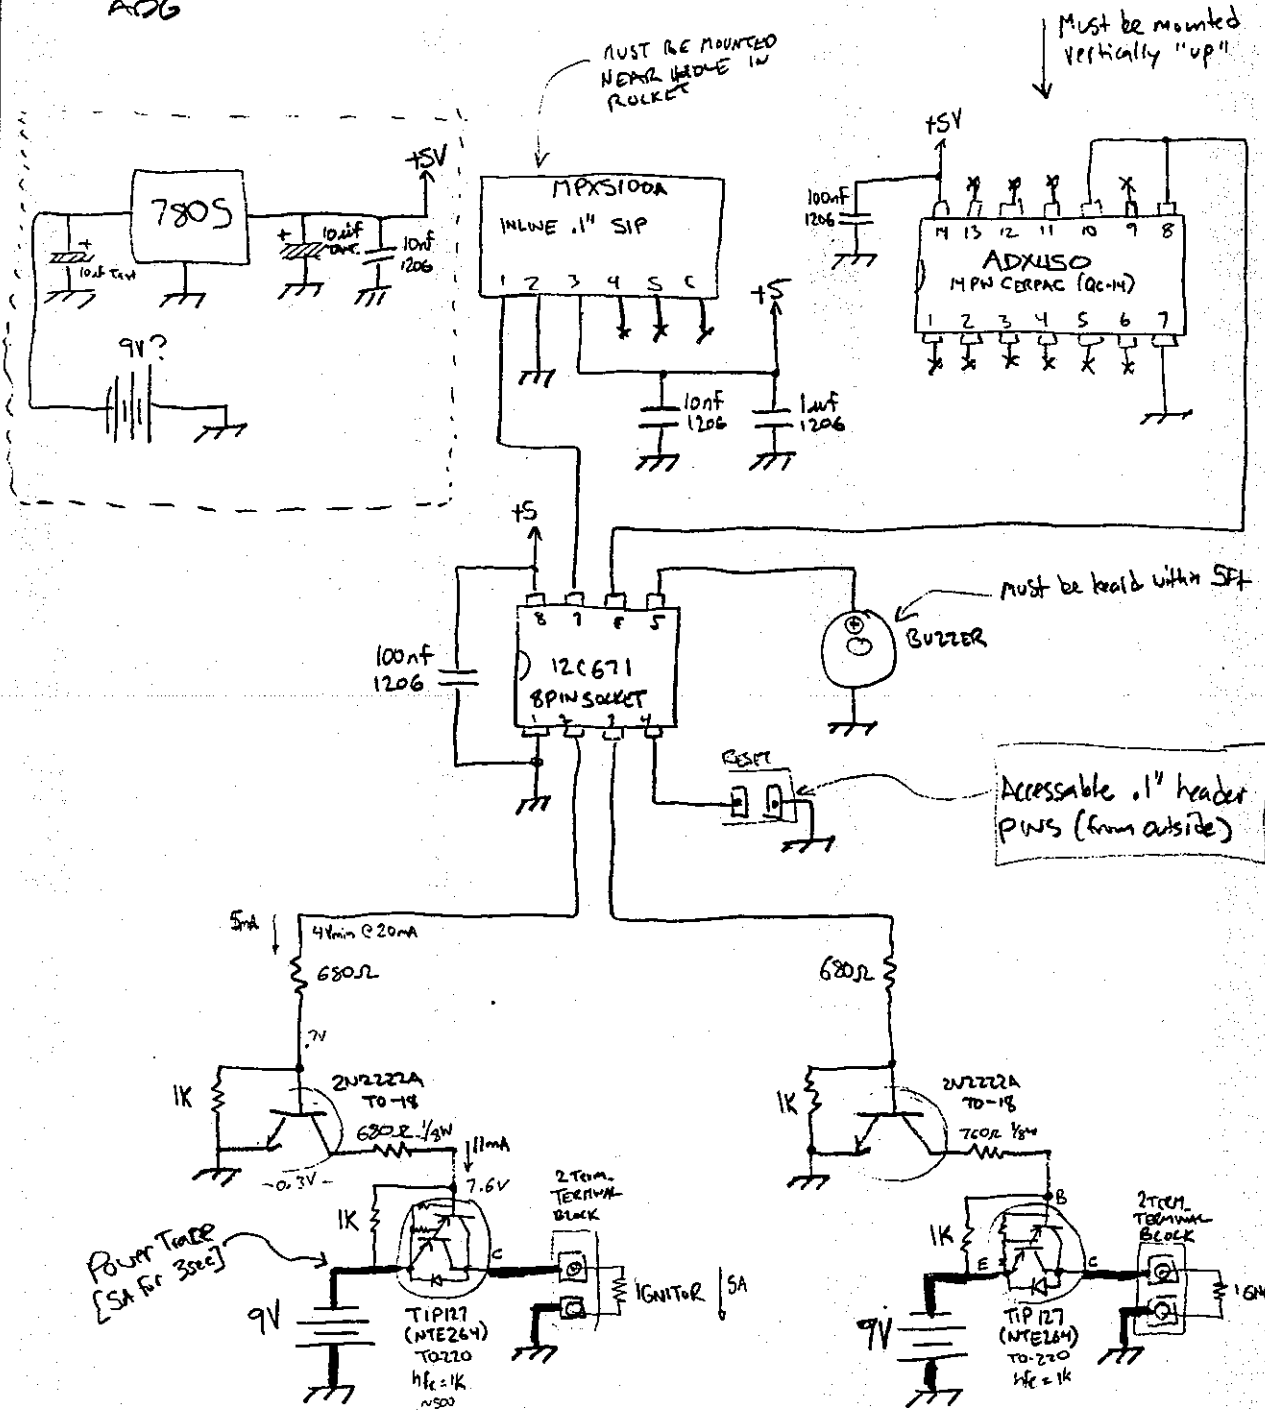 ADG
MUST BE MOUNTED
NEAR HOLE IN
ROCKET
Must be mounted
vertically "up"
+5V
7805
10uf Tant
10uf
Tant.
10nf
1206
9V?
MPX5100A
INLINE .1" SIP
1 2 3 4 5 6
+5
10nf
1206
1uf
1206
+5V
100nf
1206
14 13 12 11 10 9 8
ADXL150
14 PIN CERPAC (QC-14)
1 2 3 4 5 6 7
+5
8 7 6 5
100nf
1206
12C671
8PIN SOCKET
1 2 3 4
BUZZER
must be heard within 5Ft
RESET
Accessable .1" header
PINS (from outside)
5mA
4Vmin @ 20mA
680Ω
.7V
1K
2N2222A
TO-18
680Ω 1/8W
11mA
~0.3V~
7.6V
1K
C
2 Term.
TERMINAL
BLOCK
Power Trace
[5A for 3sec]
9V
TIP127
(NTE264)
TO220
hfe=1K
~500
IGNITOR
5A
680Ω
1K
2N2222A
TO-18
760Ω 1/8W
B
1K
E
C
2 TERM.
TERMINAL
BLOCK
9V
TIP127
(NTE264)
TO-220
hfe=1K
IGN